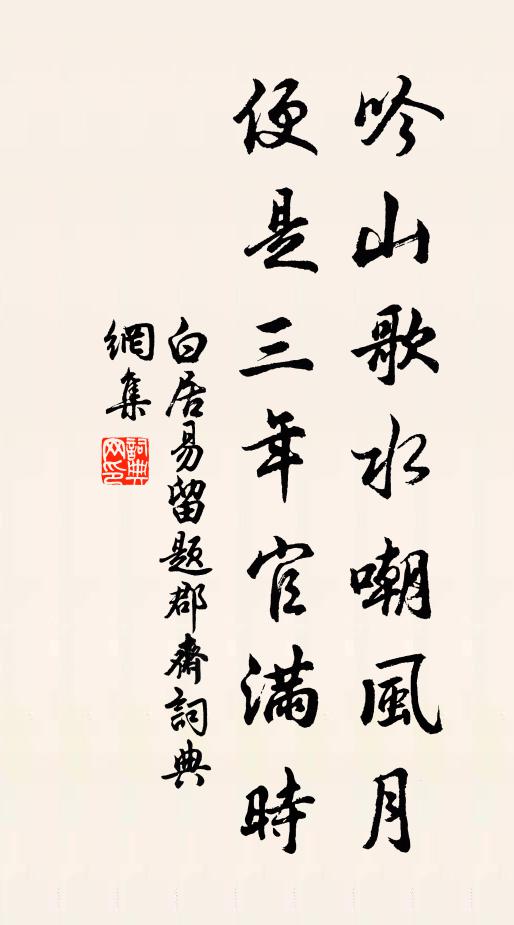 吟山歌水嘲風月
便是三年官滿時
白居易留題郡齋詞典
網集
詞典网印